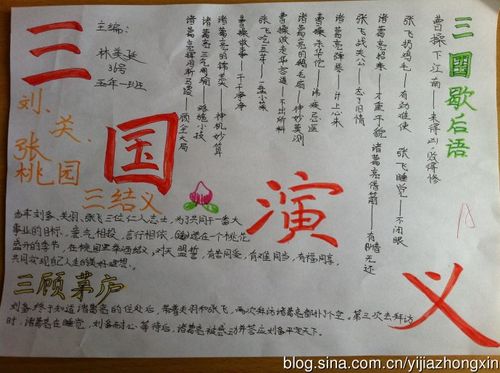 三国演义
主编：
林美延
31号
五年一班
刘、关、
张
桃园
三结义
三国歇后语
曹操下江南——来得凶，败得惨
张飞扔鸡毛——有劲难使
张飞睡觉——不闭眼
诸葛亮招亲——才重于貌
诸葛亮借箭——有借无还
张飞战关公——忘了旧情
诸葛亮弹琴——计上心来
曹操杀华佗——讳疾忌医
诸葛亮的鹅毛扇——神妙莫测
曹操败走华容道——不出所料
张飞吃豆芽——一盘小菜
曹操做事——干干净净
诸葛亮的锦囊——神机妙算
诸葛亮三气周瑜——略施小技
诸葛亮挥泪斩马谡——顾全大局
当年刘备、关羽、张飞三位仁人志士，为了共同干一番大
事业的目标，意气相投，言行相依，选在一个桃花
盛开的季节，在桃园举酒结义，对天盟誓，有苦同受，有难同当，有福同享，
共同实现自己人生的美好理想。
三顾茅庐
刘备终于知道诸葛亮的住处后，带着关羽和张飞，两次拜访诸葛亮都扑了个空。第三次去拜访
时，诸葛亮在睡觉，刘备耐心等待后，诸葛亮被感动并答应刘备平定天下。
blog.sina.com.cn/yijiazhongxin